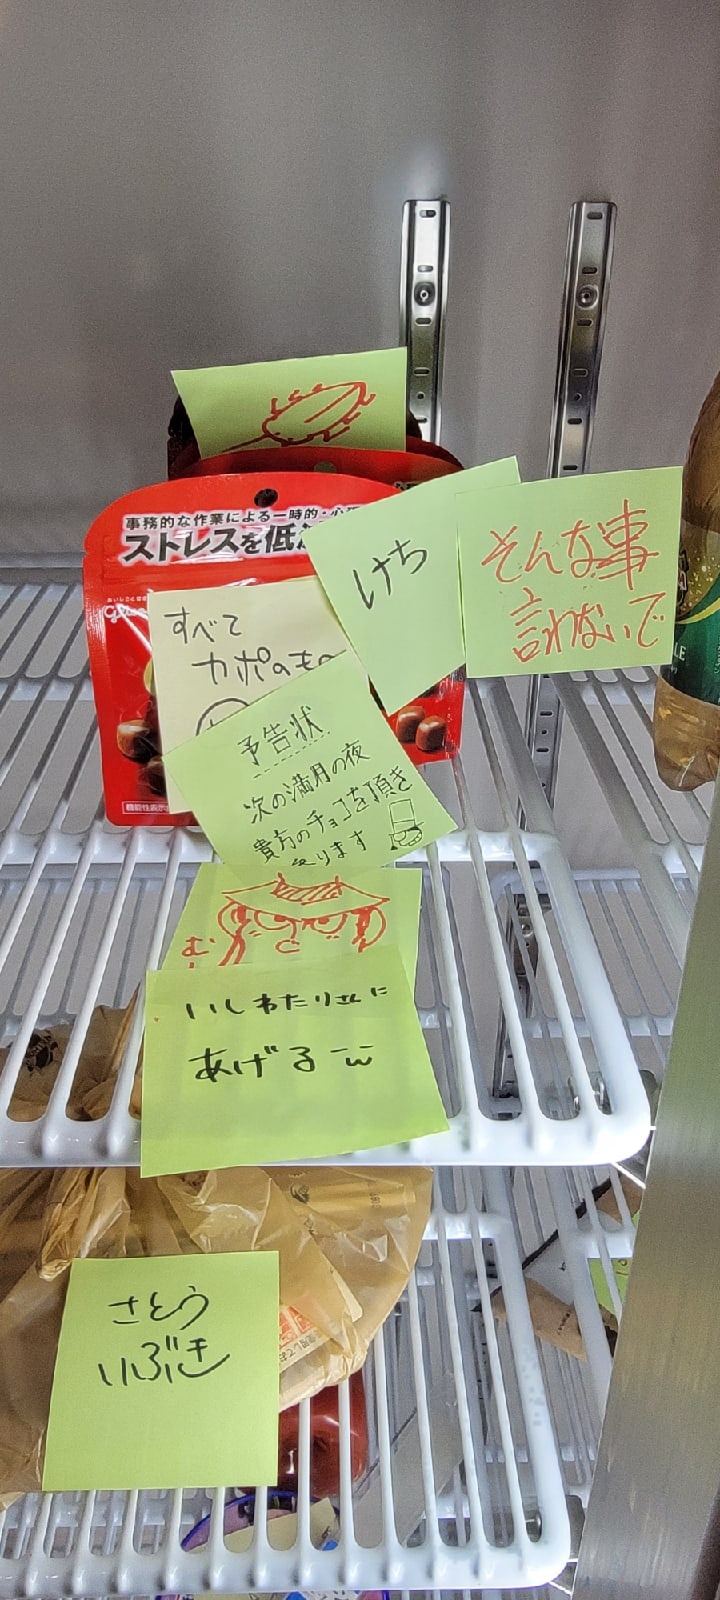 事務的な作業による一時的・心理
ストレスを低減
すべて
カポのもの
けち
そんな事
言わないで
予告状
次の満月の夜
貴方のチョコを頂き
参ります
む
いしわたりさんに
あげるw
さとう
いぶき